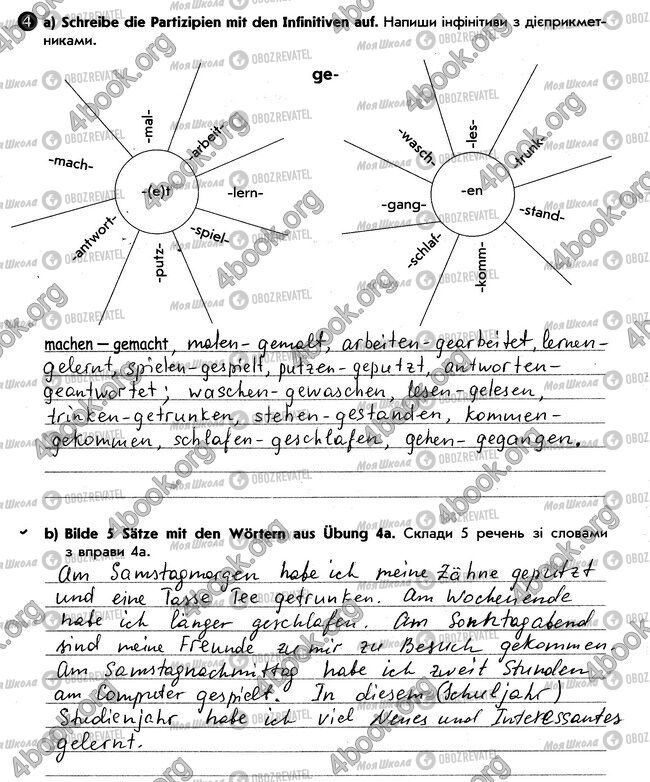 4 a) Schreibe die Partizipien mit den Infinitiven auf. Напиши інфінітиви з дієприкмет-
никами.
ge-
-mach-
-mal-
-arbeit-
-lern-
-spiel-
-putz-
-antwort-
-(e)t
-wasch-
-les-
-trunk-
-stand-
-komm-
-schlaf-
-gang-
-en
machen — gemacht, malen - gemalt, arbeiten - gearbeitet, lernen -
gelernt, spielen - gespielt, putzen - geputzt, antworten -
geantwortet; waschen - gewaschen, lesen - gelesen,
trinken - getrunken, stehen - gestanden, kommen -
gekommen, schlafen - geschlafen, gehen - gegangen.
b) Bilde 5 Sätze mit den Wörtern aus Übung 4a. Склади 5 речень зі словами
з вправи 4a.
Am Samstagmorgen habe ich meine Zähne geputzt
und eine Tasse Tee getrunken. Am Wochenende
habe ich länger geschlafen. Am Sonntagabend
sind meine Freunde zu mir zu Besuch gekommen.
Am Samstagnachmittag habe ich zweit Stunden
am Computer gespielt. In diesem (Schuljahr)
Studienjahr habe ich viel Neues und Interessantes
gelernt.
4book.org
Моя Школа
OBOZREVATEL